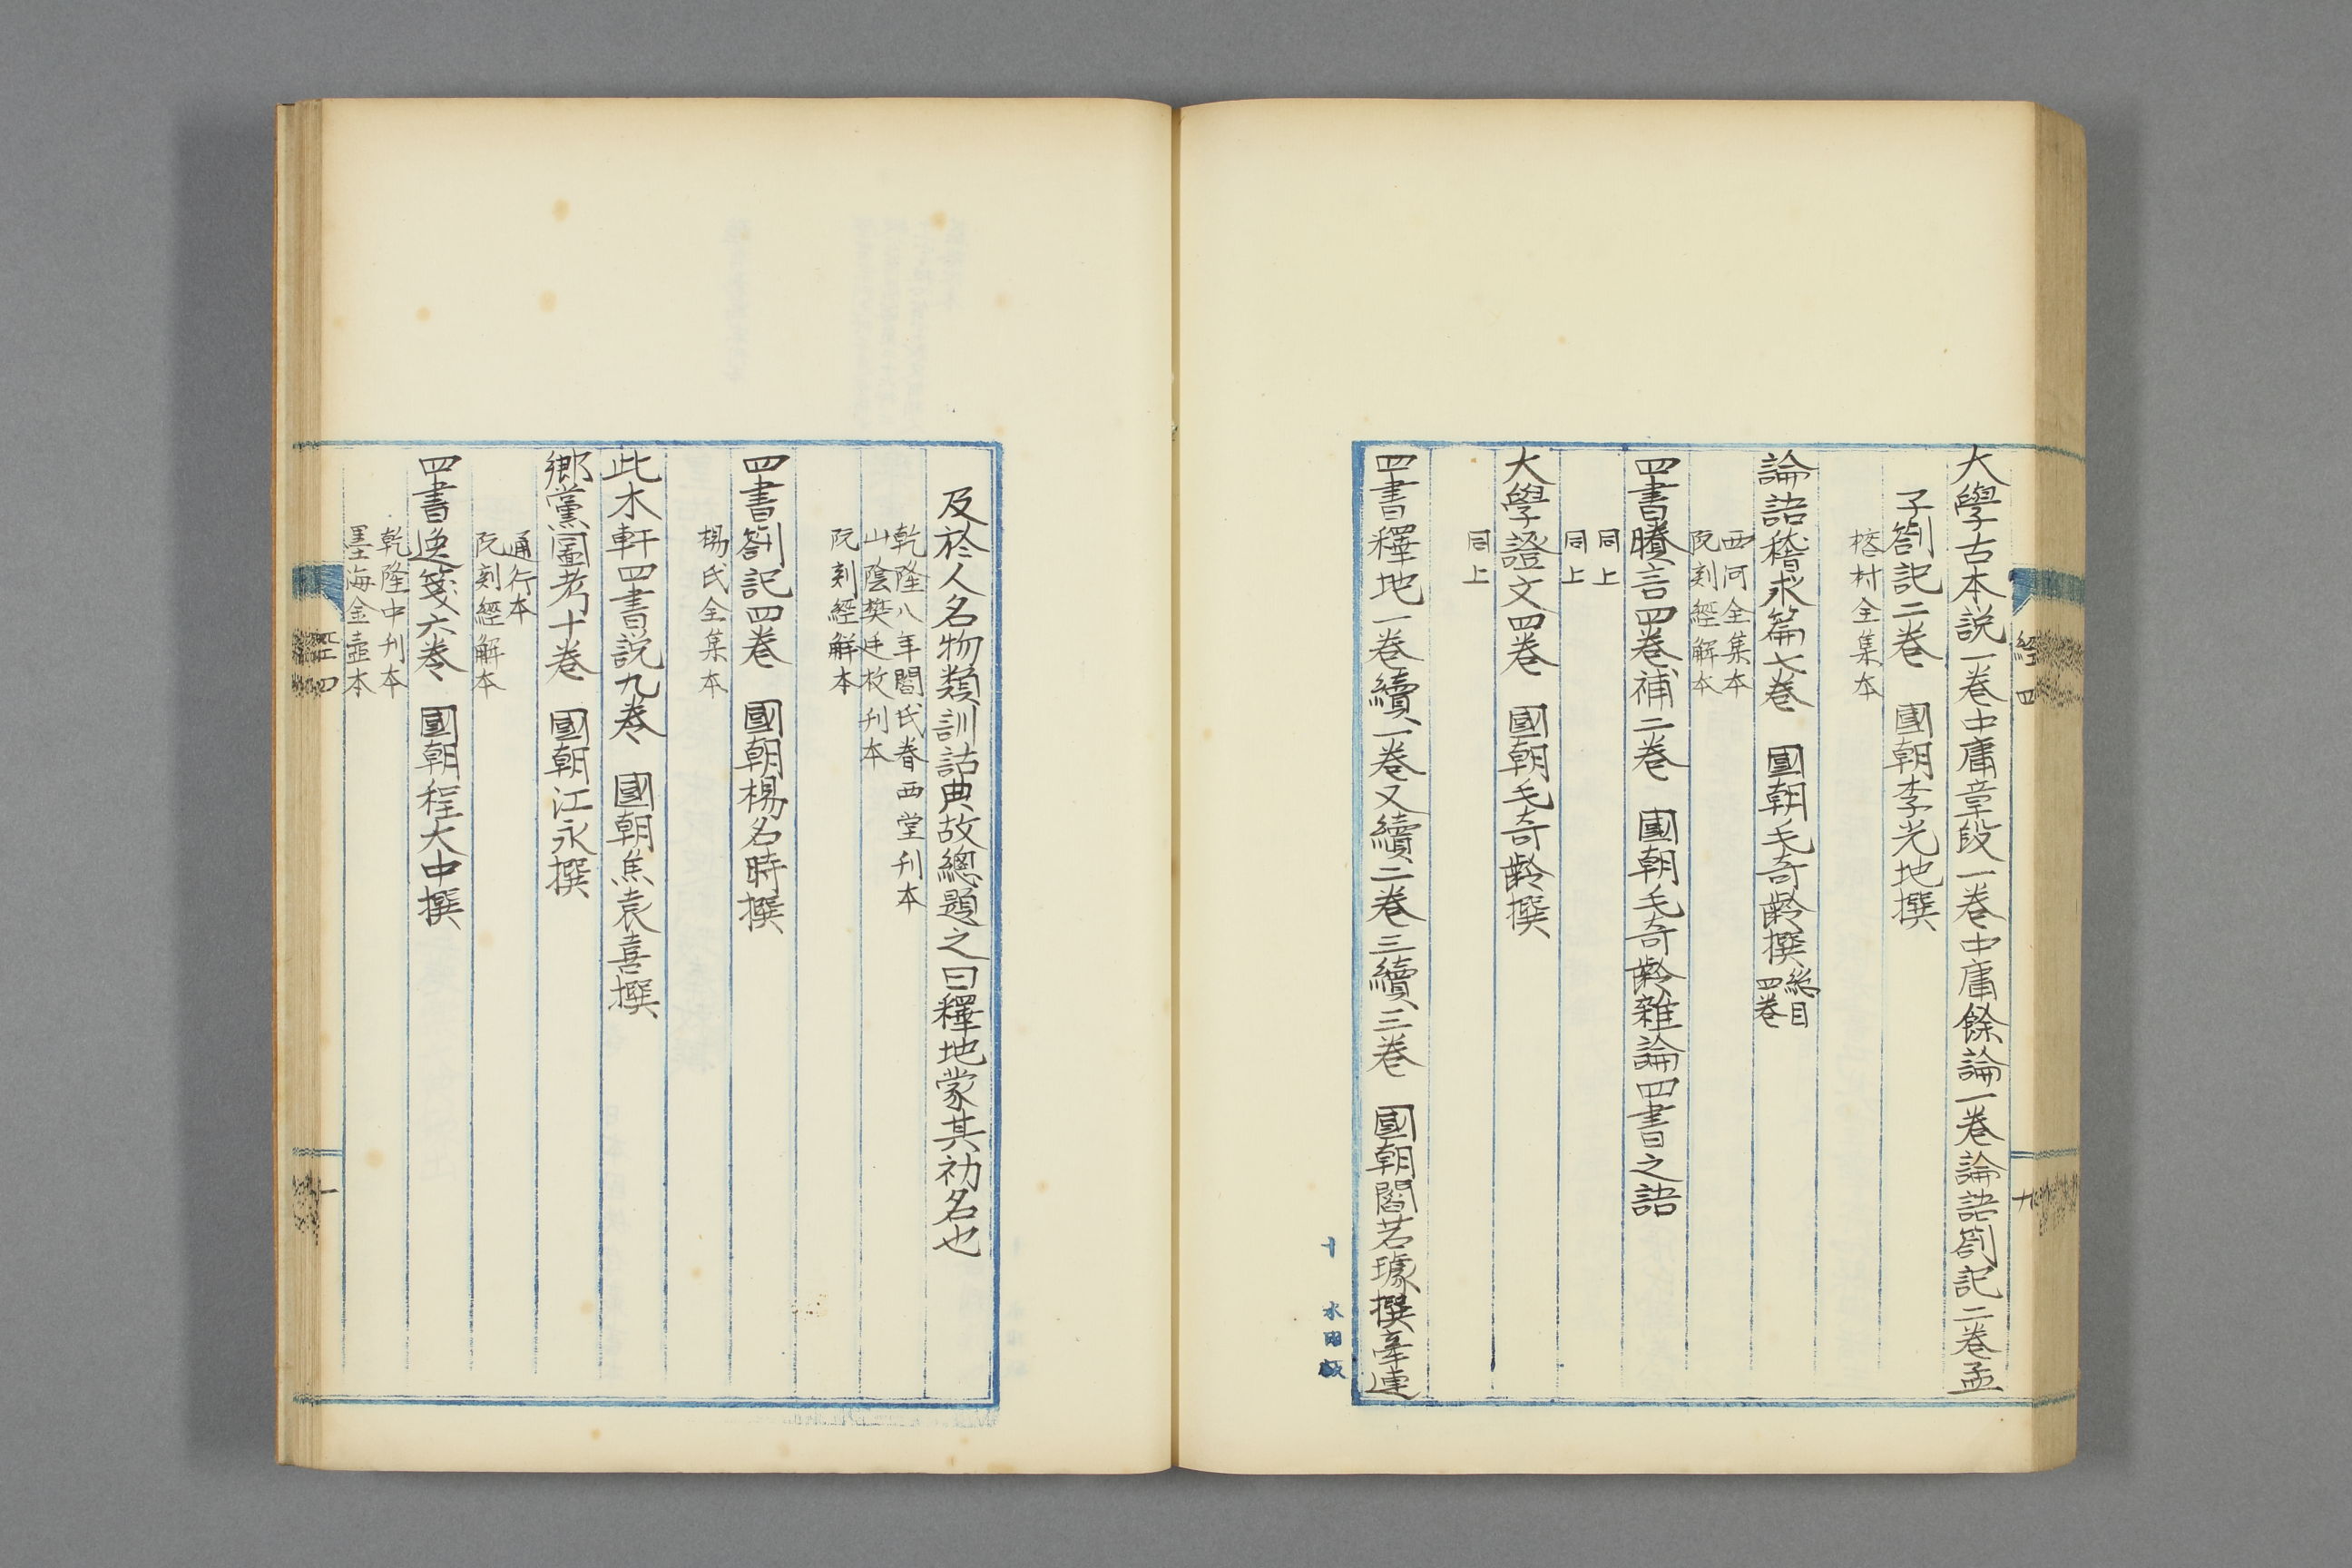 經四
九
大學古本説一卷中庸章段一卷中庸餘論一卷論語劄記二卷孟
子劄記二卷　國朝李光地撰
榕村全集本
論語稽求篇七卷　國朝毛奇齡撰總目四卷
西河全集本
阮刻經解本
四書賸言四卷補二卷　國朝毛奇齡雜論四書之語
同上
同上
大學證文四卷　國朝毛奇齡撰
同上
四書釋地一卷續一卷又續二卷三續三卷　國朝閻若璩撰牽連
十
及於人名物類訓詁典故總題之曰釋地蒙其初名也
乾隆八年閻氏眷西堂刊本
山陰樊廷枚刊本
阮刻經解本
四書劄記四卷　國朝楊名時撰
楊氏全集本
此木軒四書説九卷　國朝焦袁喜撰
鄉黨圖考十卷　國朝江永撰
通行本
阮刻經解本
四書逸箋六卷　國朝程大中撰
乾隆中刊本
墨海金壺本
經四